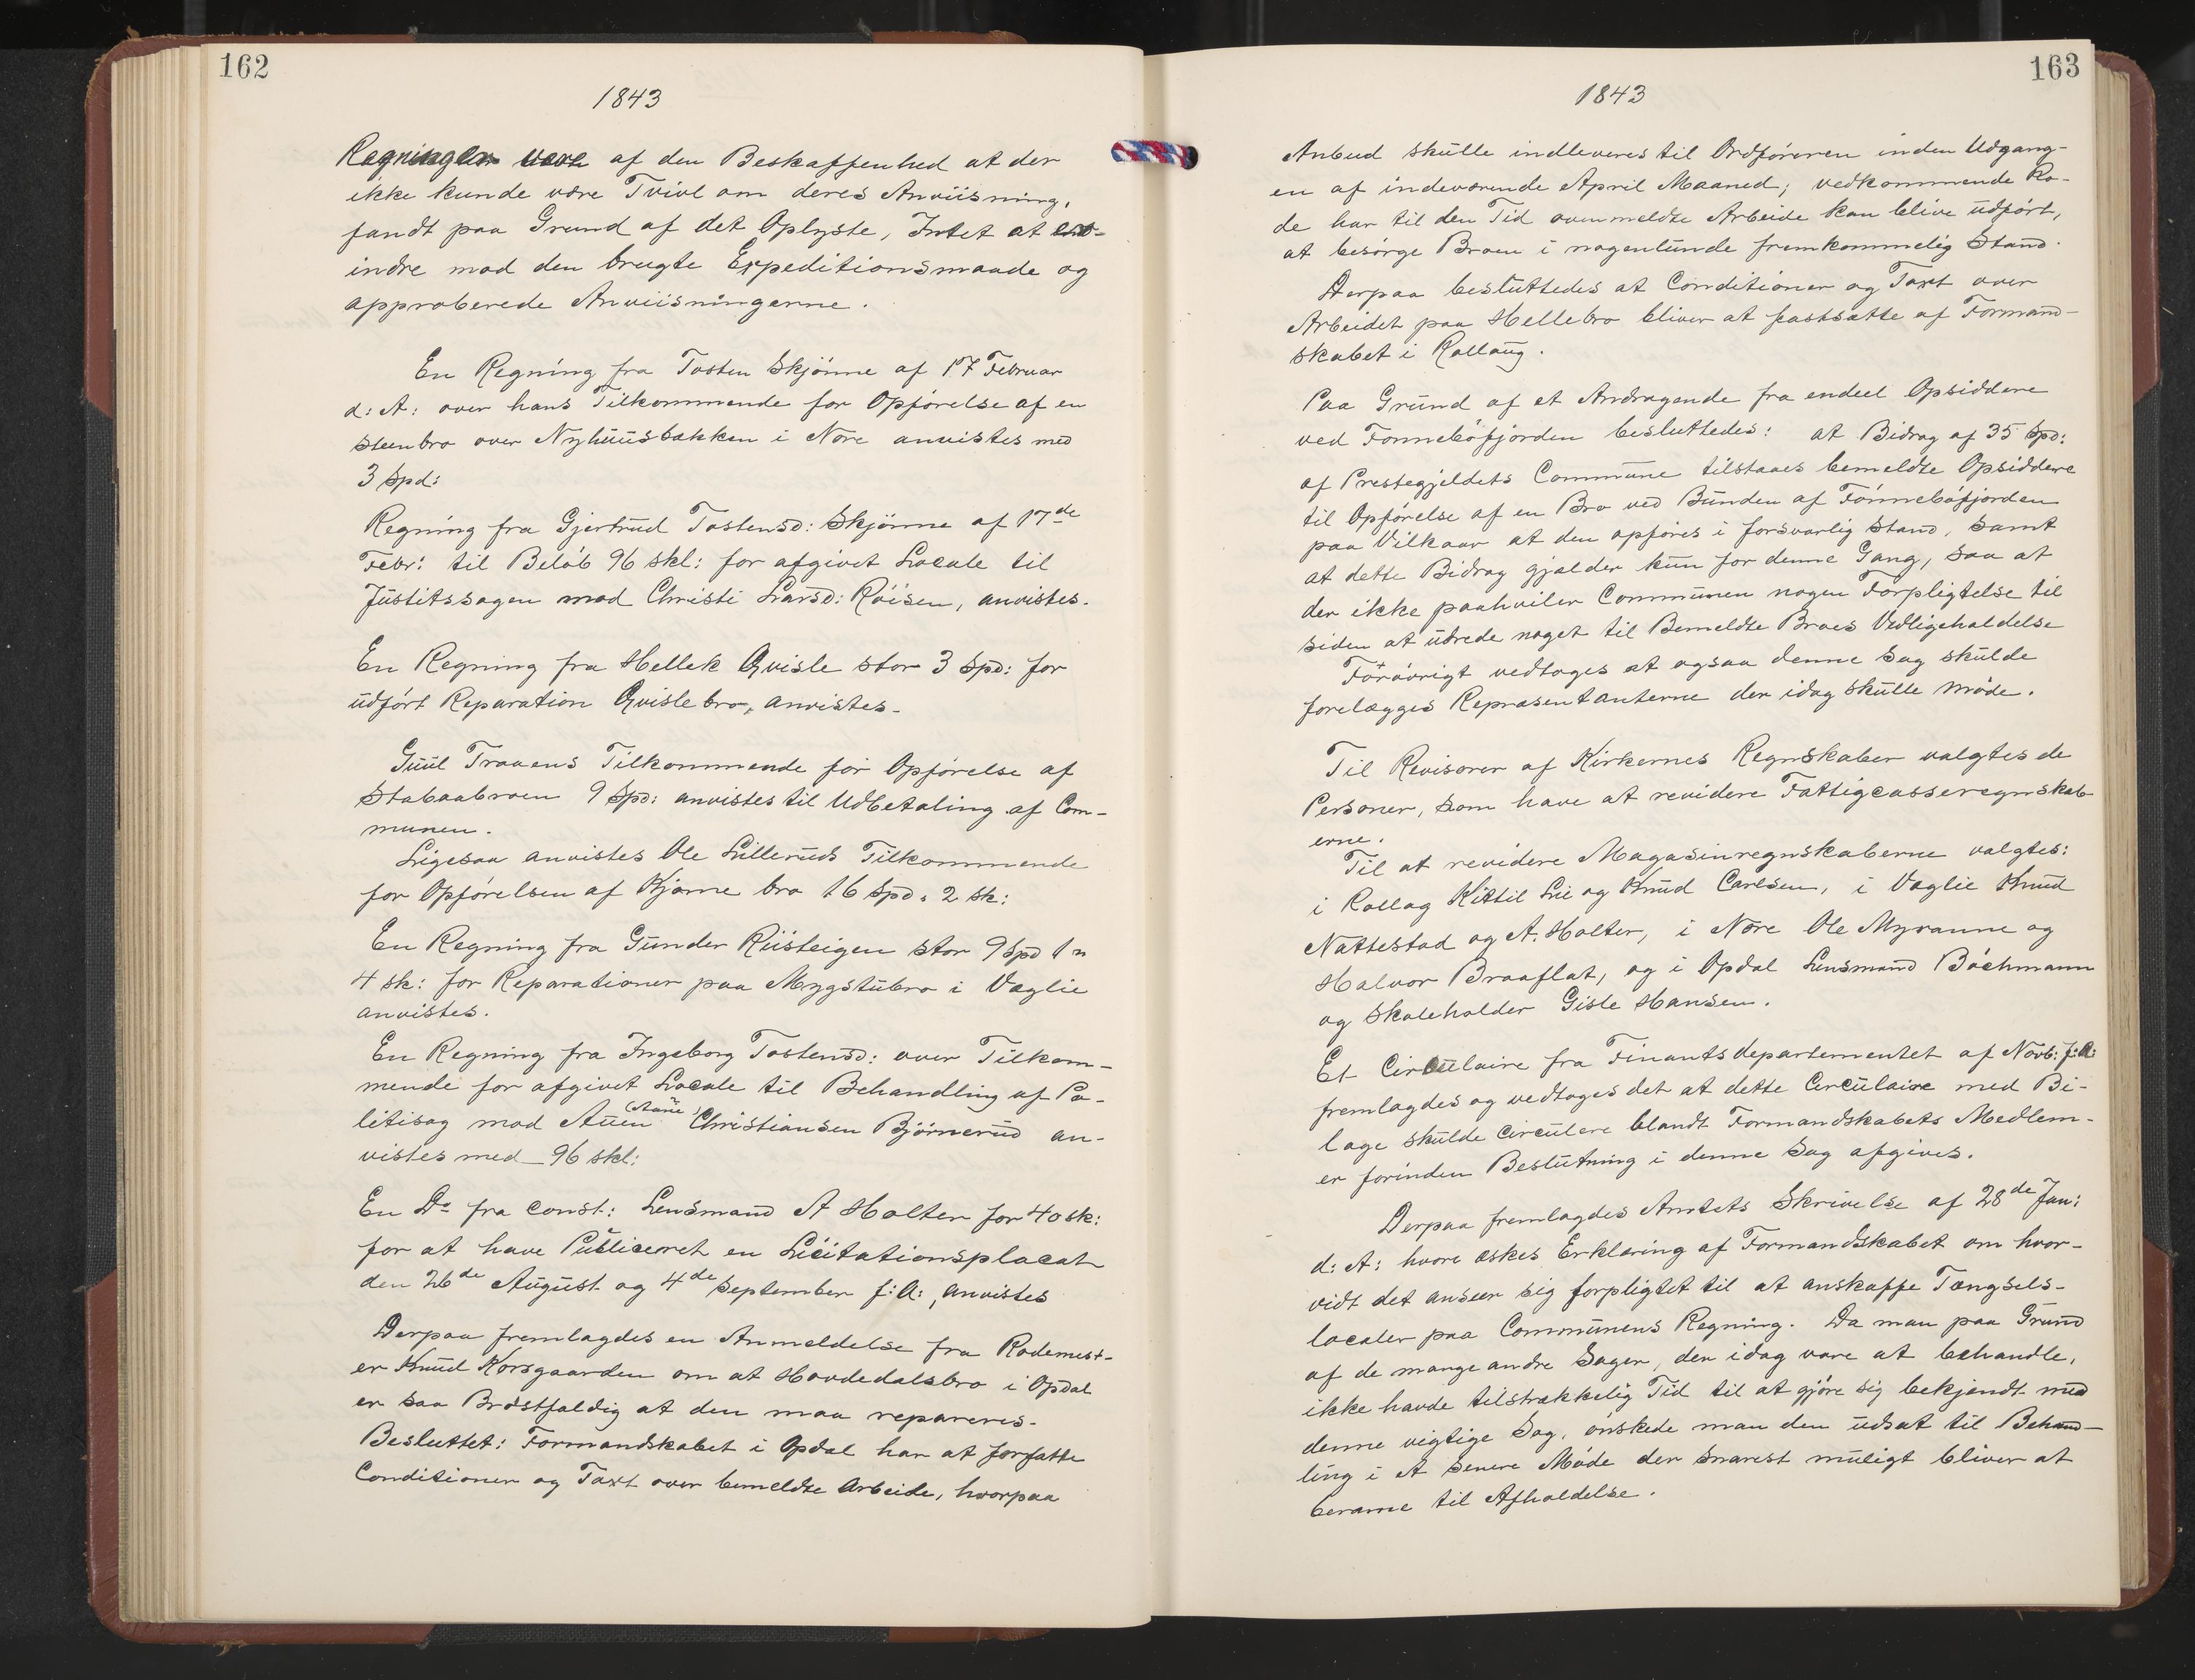 162
1843
Regningen vare af den Beskaffenhed at der
ikke kunde være Tvivl om deres Anviisning,
fandt paa Grund af det Oplyste, Intet at er-
indre mod den brugte Expeditionsmaade og
approberede Anviisningerne.
En Regning fra Tosten Skjönne af 17 Februar
d: A: over hans Tilkommende for Opförelse af en
Steenbro over Nyhuusbækken i Nore anvistes med
3 Spd:
Regning fra Gjertrud Tostensd: Skjönne af 17de
Febr: til Belöb 96 skl: for afgivet Locale til
Justitssagen mod Christi Larsd: Röisen, anvistes.
En Regning fra Hellek Qvisle stor 3 Spd: for
udfört Reparation Qvislebro, anvistes.
Guul Traaens Tilkommende for Opförelse af
Stabaabroen 9 Spd: anvistes til Udbetaling af Com-
munen.
Ligesaa anvistes Ole Lilleruds Tilkommende
for Opförelsen af Kjörne bro 16 Spd. 2 sk:
En Regning fra Gunder Ruusteigen stor 9 Spd 1 n
4 sk: for Reparationer paa Mygstubro i Væglie
anvistes.
En Regning fra Ingeborg Tostensd: over Tilkom-
mende for afgivet Locale til Behandling af Po-
litisag mod Auen (Aane) Christiansen Björnerud an-
vistes med 96 skl:
En Do fra const: Lensmand A Holter for 40 sk:
for at have Publiceret en Licitationsplacat
den 26de August og 4de September f: A:, anvistes
Derpaa fremlagdes en Anmeldelse fra Rodemest-
er Knud Korsgaarden om at Hovdedalsbro i Opdal
er saa Bröstfaldig at den maa repareres.
Besluttet: Formandskabet i Opdal har at forfatte
Conditioner og Taxt over bemeldte Arbeide, hvorpaa
163
1843
Anbud skulle indleveres til Ordföreren inden Udgang-
en af indeværende April Maaned; vedkommende Ro-
de har til den Tid ovenmeldte Arbeide kan blive udfört,
at besörge Broen i nogenlunde fremkommelig Stand.
Derpaa besluttedes at Conditioner og Taxt over
Arbeidet paa Hellebro bliver at fastsætte af Formand-
skabet i Rollaug.
Paa Grund af et Andragende fra endeel Opsiddere
ved Tonneböfjorden besluttedes: at Bidrag af 35 Spd:
af Prestegjeldets Commune tilstaaes bemeldte Opsiddere
til Opförelse af en Bro ved Bunden af Tönneböfjorden
paa Vilkaar at den opföres i forsvarlig Stand, samt
at dette Bidrag gjælder kun for denne Gang, saa at
der ikke paahviler Communen nogen Forpligtelse til
siden at udrede noget til Bemeldte Broes Vedligeholdelse
Forövrigt vedtoges at ogsaa denne Sag skulde
forelægges Repræsentanterne der idag skulle möde.
Til Revisorer af Kirkernes Regnskaber valgtes de
Personer, som have at revidere Fattigcasseregnskab-
erne.
Til at revidere Magasinregnskaberne valgtes:
i Rollag Kittil Lie og Knud Carlsen, i Væglie Knud
Nattestad og A. Holter, i Nore Ole Myranne og
Halvor Braaflat, og i Opdal Lensmand Böchmann
og Skoleholder Gisle Hansen.
Et Circulaire fra Finantsdepartementet af Novb: f: A:
fremlagdes og vedtoges det at dette Circulaire med Bi-
lage skulde circulere blandt Formandskabets Medlem-
er forinden Beslutning i denne Sag afgives.
Derpaa fremlagdes Amtets Skrivelse af 28de Jan:
d: A: hvori æskes Erklæring af Formandskabet om hvor-
vidt det anseer sig forpligtet til at anskaffe Tængsels-
localer paa Communens Regning. Da man paa Grund
af de mange andre Sager, der idag vare at behandle,
ikke havde tilstrækkelig Tid til at gjöre sig bekjendt med
denne vigtige Sag, önskede man den udsat til Behand-
ling i et senere Möde der snarest muligt bliver at
berame til Afholdelse.